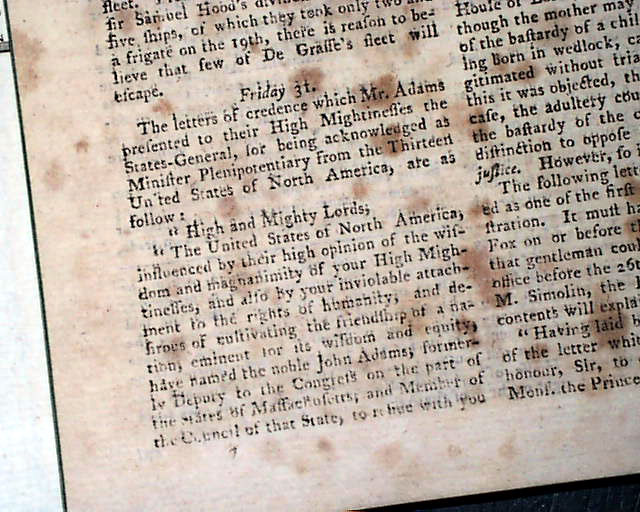 fleet.
Sir Samuel Hood's
five ships, of which they took only two and
a frigate on the 19th, there is reason to be-
lieve that few of De Grasse's fleet will
escape.
Friday 31.
The letters of credence which Mr. Adams
presented to their High Mightinesses the
States-General, for being acknowledged as
Minister Plenipotentiary from the Thirteen
United States of North America, are as
follow:
" High and Mighty Lords,
" The United States of North America,
influenced by their high opinion of the wis-
dom and magnanimity of your High Migh-
tinesses, and also by your inviolable attach-
ment to the rights of humanity; and de-
sirous of cultivating the friendship of a na-
tion, eminent for its wisdom and equity,
have named the noble John Adams, former-
ly Deputy to the Congress on the part of
the States of Massachusetts, and Member of
the Council of that State, to reside with you
House of
though the mother may
of the bastardy of a chi
ing born in wedlock, ca
gitimated without tria
this it was objected, tha
case, the adultery cou
the bastardy of the c
distinction to oppose
justice. However, so i
The following lett
ed as one of the first
stration. It must ha
Fox on or before th
that gentleman con
office before the 26t
M. Simolin, the
contents will expla
" Having laid b
of the letter whic
honour, Sir, to
Mons. the Prince